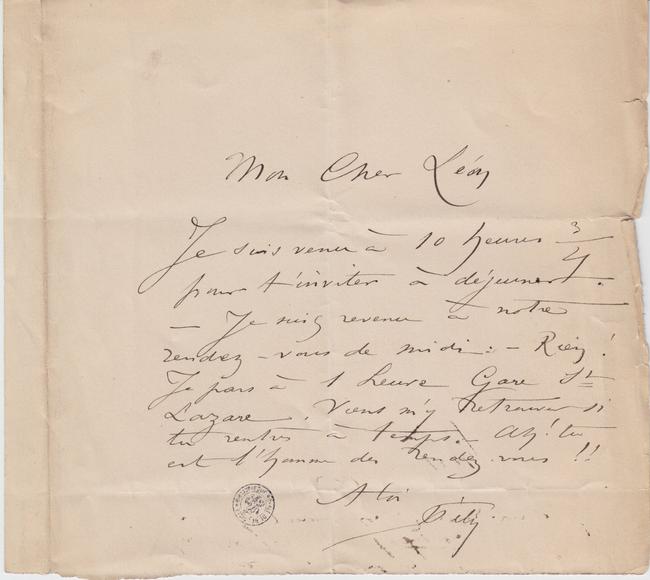 Mon Cher Léon
Je suis venu à 10 heures 3/4
pour t'inviter à déjeuner.
— Je suis revenu à notre
rendez-vous de midi : — Rien !
Je pars à 1 heure Gare St
Lazare. Viens m'y retrouver si
tu rentres à temps. Ah ! tu
est l'homme des rendez-vous !!
A toi